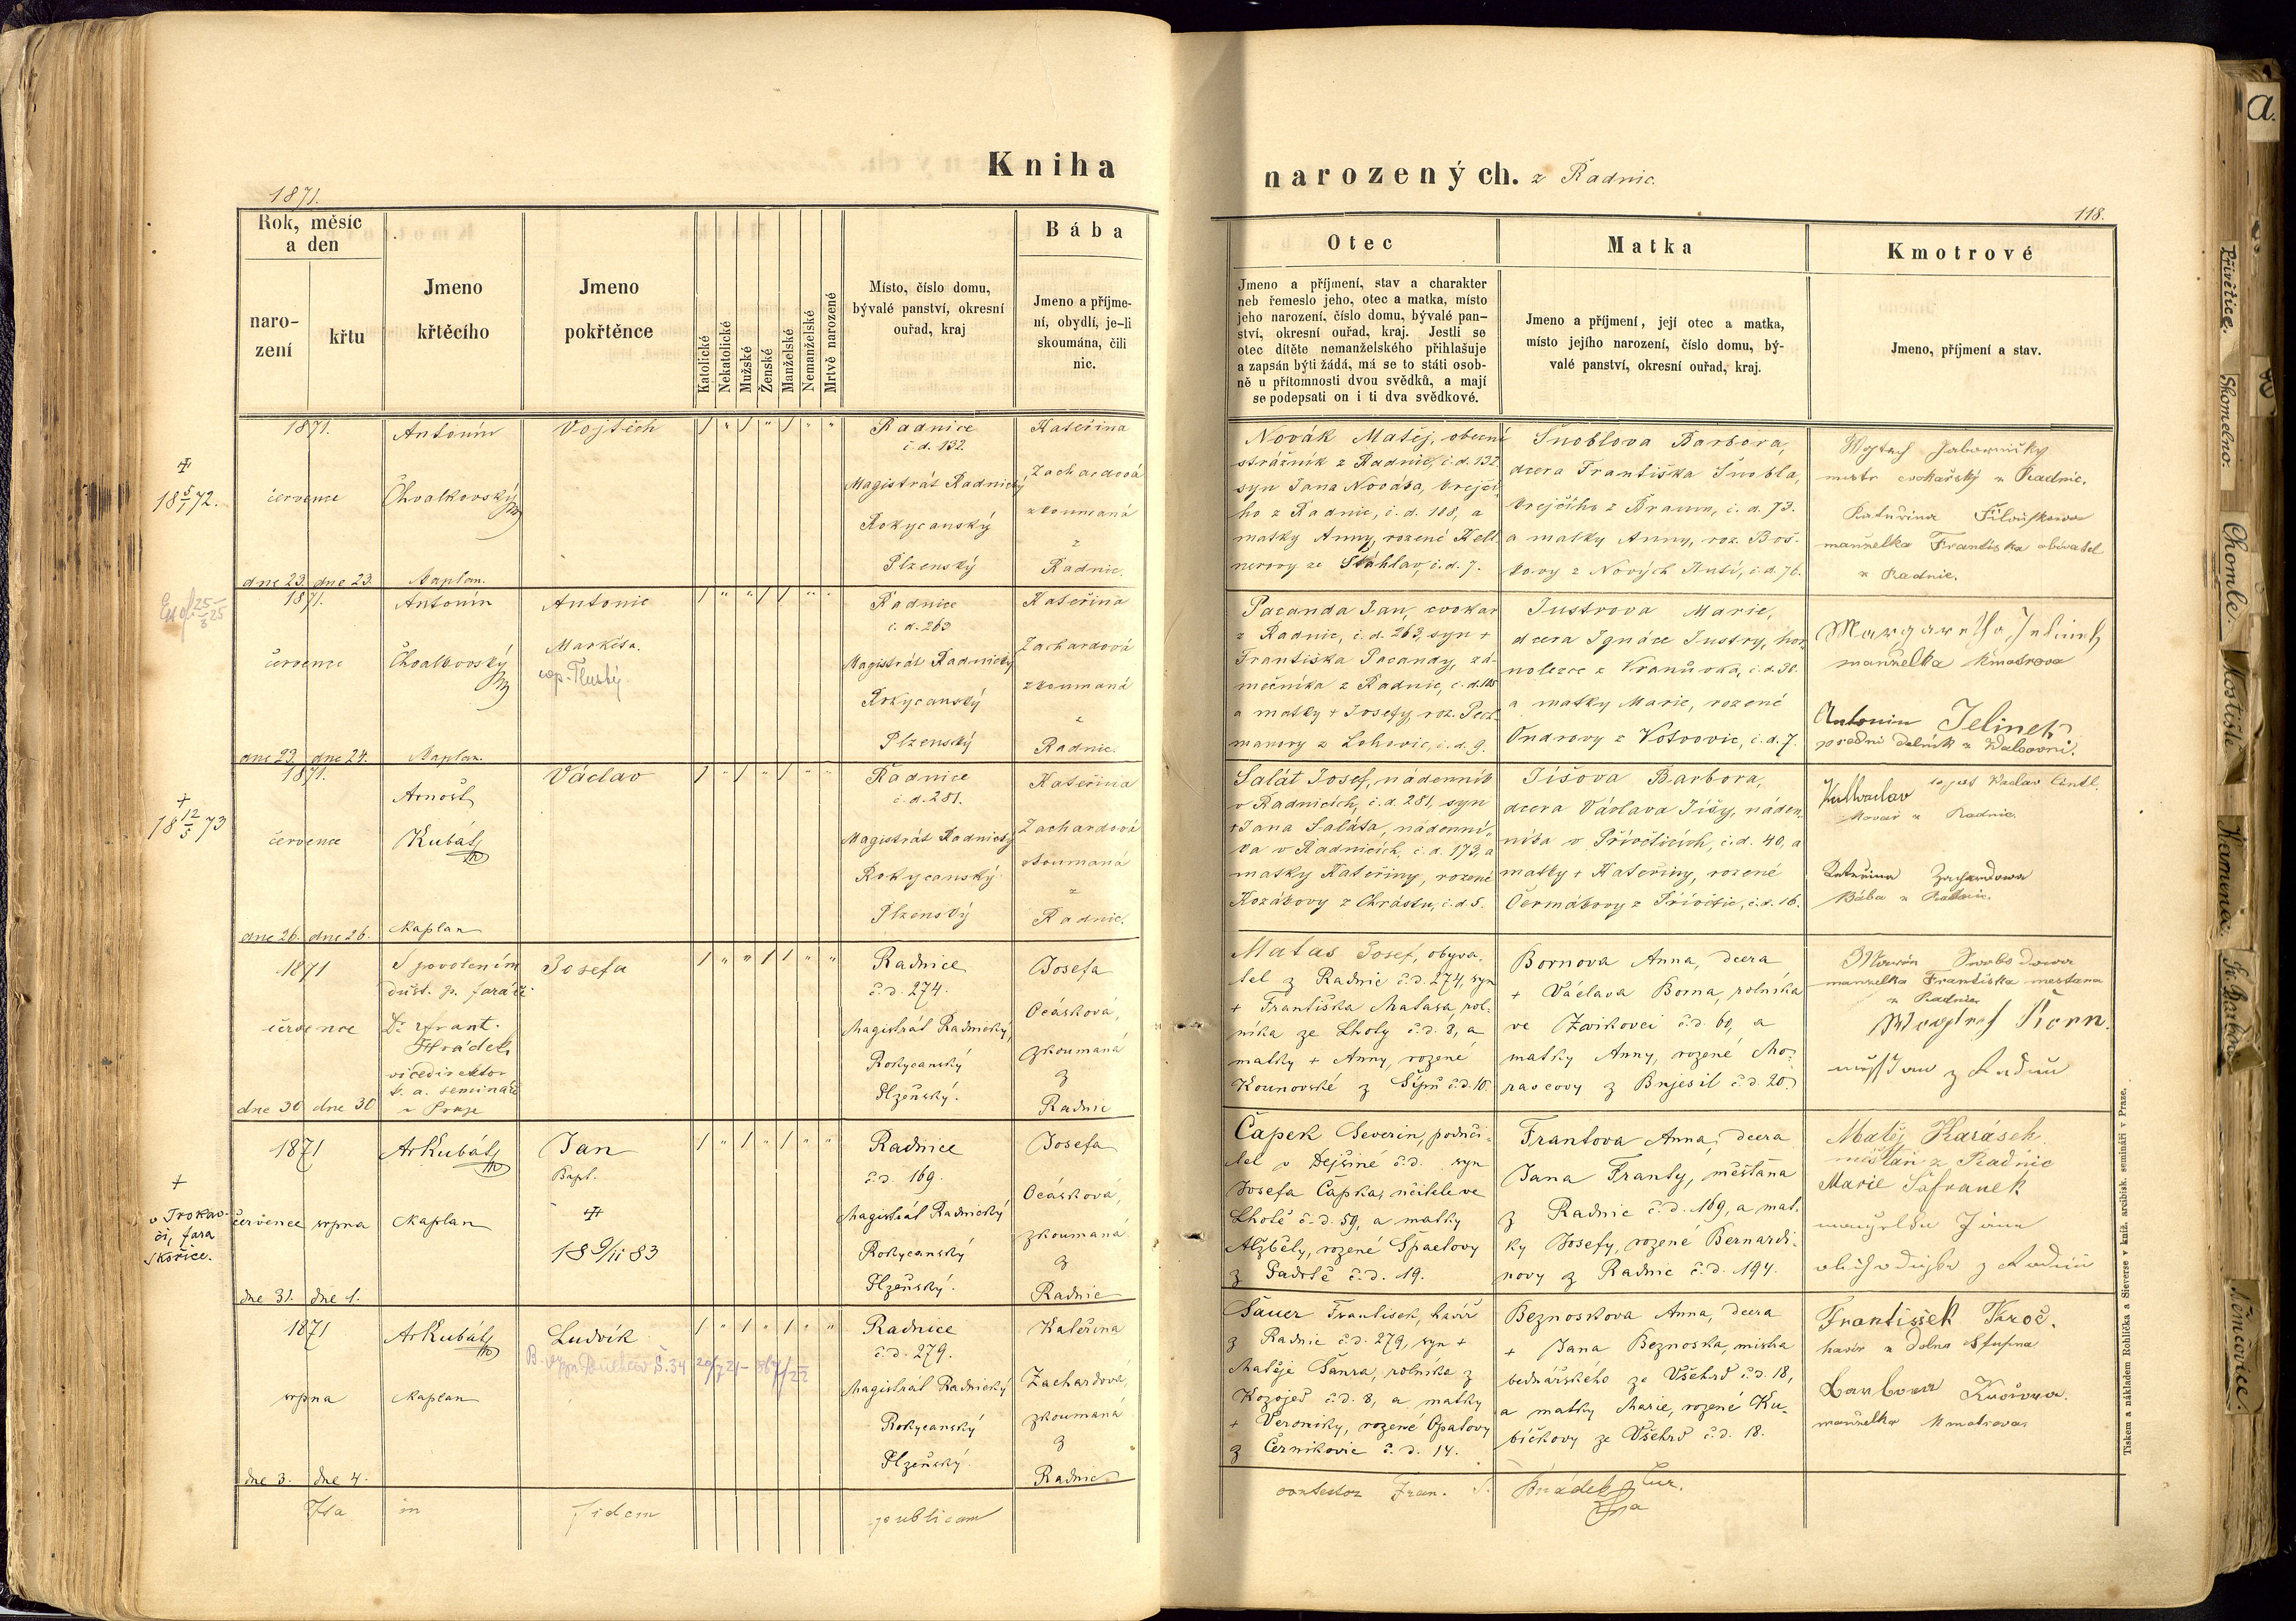 Kniha
narozených. z Radnic.
1871.
118.
Rok, měsíc
a den
naro-
zení
křtu
Jmeno
křtěcího
Jmeno
pokřtěnce
Katolické
Nekatolické
Mužské
Ženské
Manželské
Nemanželské
Mrtvě narozené
Místo, číslo domu,
bývalé panství, okresní
ouřad, kraj
Bába
Jmeno a příjme-
ní, obydlí, je-li
skoumána, čili
nic.
Otec
Jmeno a příjmení, stav a charakter
neb řemeslo jeho, otec a matka, místo
jeho narození, číslo domu, bývalé pan-
ství, okresní ouřad, kraj. Jestli se
otec dítěte nemanželského přihlašuje
a zapsán býti žádá, má se to státi osob-
ně u přítomnosti dvou svědků, a mají
se podepsati on i ti dva svědkové.
Matka
Jmeno a příjmení, její otec a matka,
místo jejího narození, číslo domu, bý-
valé panství, okresní ouřad, kraj.
Kmotrové
Jmeno, příjmení a stav.
1871.
července
dne 23. dne 23.
Antonín
Chvalkovský
Kaplan.
Vojtěch
Radnice
č.d. 132.
Magistrát Radnický
Rokycanský
Plzenský
Kateřina
Zachardová
zkoumaná
z
Radnic.
Novák Matěj, obecní
strážník z Radnic, č.d. 132
syn Jana Nováka, krejčí-
ho z Radnic, č.d. 108, a
matky Anny, rozené Kell-
nerovy ze Stáhlav, č.d. 7.
Šnoblova Barbora,
dcera Františka Šnobla,
krejčího z Braum, č.d. 73.
a matky Anny, roz. Boš-
kovy z Nových Hutí, č.d. 76.
mistr cvokařský z Radnic.
Kateřina
manželka Františka obivatel
z Radnic.
1871.
července
dne 23. dne 24.
Antonín
Chvalkovský
Kaplan.
Antonie
Markéta.
cop. Tlustý
Radnice
č.d. 263
Magistrát Radnický
Rokycanský
Plzenský
Kateřina
Zachardová
zkoumaná
z
Radnic.
Pacanda Jan, cvokar
z Radnic, č.d. 263, syn +
Františka Pacandy, zá-
mečníka z Radnic, č.d. 105
a matky + Josefy, roz. Pech-
manovy z Lohovic, č.d. 9.
Justrova Marie,
dcera Ignáce Justry, hor-
nolezce z Vranůvka, č.d. 30.
a matky Marie, rozené
Ondrovy z Votvovic, č.d. 7.
Margaretha Jelinek
manželka kmotrova
Antonin Jelinek
1871.
července
dne 26. dne 26.
Arnošt
Kubát
Kaplan
Václav
Radnice
č.d. 281.
Magistrát Radnický
Rokycanský
Plzenský
Kateřina
Zachardová
zkoumaná
z
Radnic.
Salát Josef, nádenník
v Radnicích, č.d. 281, syn
+ Jana Saláta, nádenní-
ka v Radnicích, č.d. 173, a
matky Kateřiny, rozené
Kozákovy z Chrástu, č.d. 5.
Jíšova Barbora,
dcera Václava Jíšy, náden-
níka v Přívěticích, č.d. 40, a
matky + Kateřiny, rozené
Čermákovy z Přívětic, č.d. 16.
kovář z Radnic.
Kateřina Zachardowa
Bába z Radnic.
1871
července
dne 30 dne 30
S povolením
důst. p. faráře
Dr. Frant.
Hrádek
vicedirektor
k. a. semináře
v Praze
Josefa
Radnice
č.d. 274.
Magistrát Radnický,
Rokycanský
Plzeňský.
Josefa
Ocásková,
zkoumaná
z
Radnic
Matas Josef, obyva-
tel z Radnic č.d. 274, syn
+ Františka Matasa, rol-
níka ze Lhoty č.d. 8, a
matky + Anny, rozené
Kounovské z Šípů č.d. 10.
Bornova Anna, dcera
+ Václava Borna, rolníka
ve Zwikovci č.d. 60, a
matky Anny, rozené Mo-
ravcovy z Bujesil č.d. 20.
manželka Františka mestana
z Radnic
1871
července srpna
dne 31. dne 1.
ArKubát
Kaplan
Jan
Bapt.
18 9/11 83
Radnice
č.d. 169.
Magistrát Radnický
Rokycanský
Plzeňský.
Josefa
Ocásková,
zkoumaná
z
Radnic
Čapek Severin, podučí-
tel v Dejšiné č.d. syn
Josefa Čapka, učitele ve
Lhotě č.d. 59, a matky
Alžběty, rozené Špaelovy
z Padrtě č.d. 19.
Frantova Anna, dcera
Jana Franty, měšťana
z Radnic č.d. 169, a mat-
ky Josefy, rozené Bernardi-
novy z Radnic č.d. 194.
Matěj Karásek
měšťan z Radnic
Marie Šafranek
1871
srpna
dne 3. dne 4.
ArKubát
Kaplan
Ludvík
Radnice
č.d. 279.
Magistrát Radnický
Rokycanský
Plzeňský.
Kateřina
Zachardová,
zkoumaná
z
Radnic
Sauer František, havíř
z Radnic č.d. 279, syn +
Matěje Saura, rolníka z
Kozojed č.d. 8, a matky
+ Veroniky, rozené Opatovy
z Černikovic č.d. 14.
Beznoskova Anna, dcera
+ Jana Beznoska, mistra
bednářského ze Všehrd č.d. 18,
a matky Marie, rozené Ku-
bíčkovy ze Všehrd č.d. 18.
Frantissek
havíř z Dolno Stupna
manželka kmotrova
Ita in fidem publicam
contestor Fran. Hrádek
18 5/1 72.
18 12/5 73
v Trokav-
či, fara
Skořice.
Tiskem a nákladem Rohlíčka a Sieverse v kníž. arcibisk. semináři v Praze.
a.
Přívětice.
Skomelno.
Chomle.
Kostiště
Kamenná
Sv. Barbora
Němčovice.